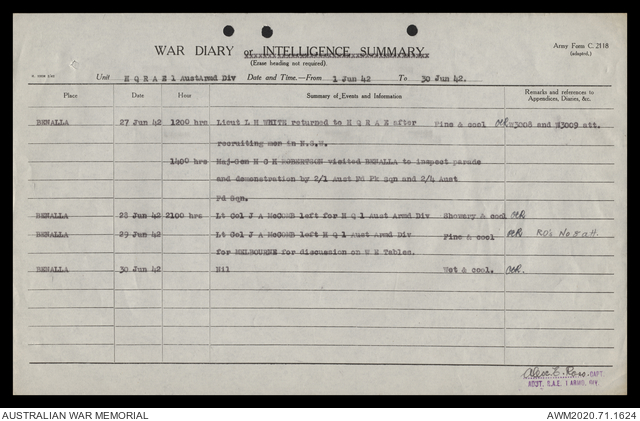 Army Form C. 2118
(adapted.)
WAR DIARY or INTELLIGENCE SUMMARY
(Erase heading not required).
Unit H Q R A E 1 AustArmd Div Date and Time.—From 1 Jun 42 To 30 Jun 42.
Place. Date Hour Summary of Events and Information Remarks and references to Appendices, Diaries, &c.
BENALLA 27 Jun 42 1200 hrs Lieut L H WHITE returned to H Q R A E after Fine & cool M3008 and M3009 att.
recruiting men in N.S.W.
1400 hrs Maj-Gen H C H ROBERTSON visited BENALLA to inspect parade
and demonstration by 2/1 Aust Fd Pk Sqn and 2/4 Aust
Fd Sqn.
BENALLA 28 Jun 42 2100 hrs Lt Col J A McCOMB left for H Q 1 Aust Armd Div Showery & cool
BENALLA 29 Jun 42 Lt Col J A McCOMB left H Q 1 Aust Armd Div Fine & cool RO's No 8 att.
for MELBOURNE for discussion on W E Tables.
BENALLA 30 Jun 42 Nil Wet & cool.
Ross CAPT.
ADJT. R.A.E. 1 ARMD. DIV.
AUSTRALIAN WAR MEMORIAL
AWM2020.71.1624